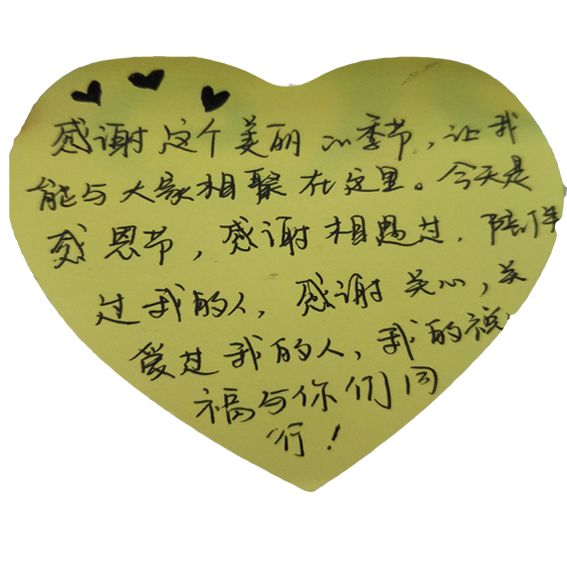 感谢这个美丽的季节，让我
能与大家相聚在这里。今天是
感恩节，感谢相遇过、陪伴
过我的人，感谢关心，关
爱过我的人，我的祝
福与你们同
行！